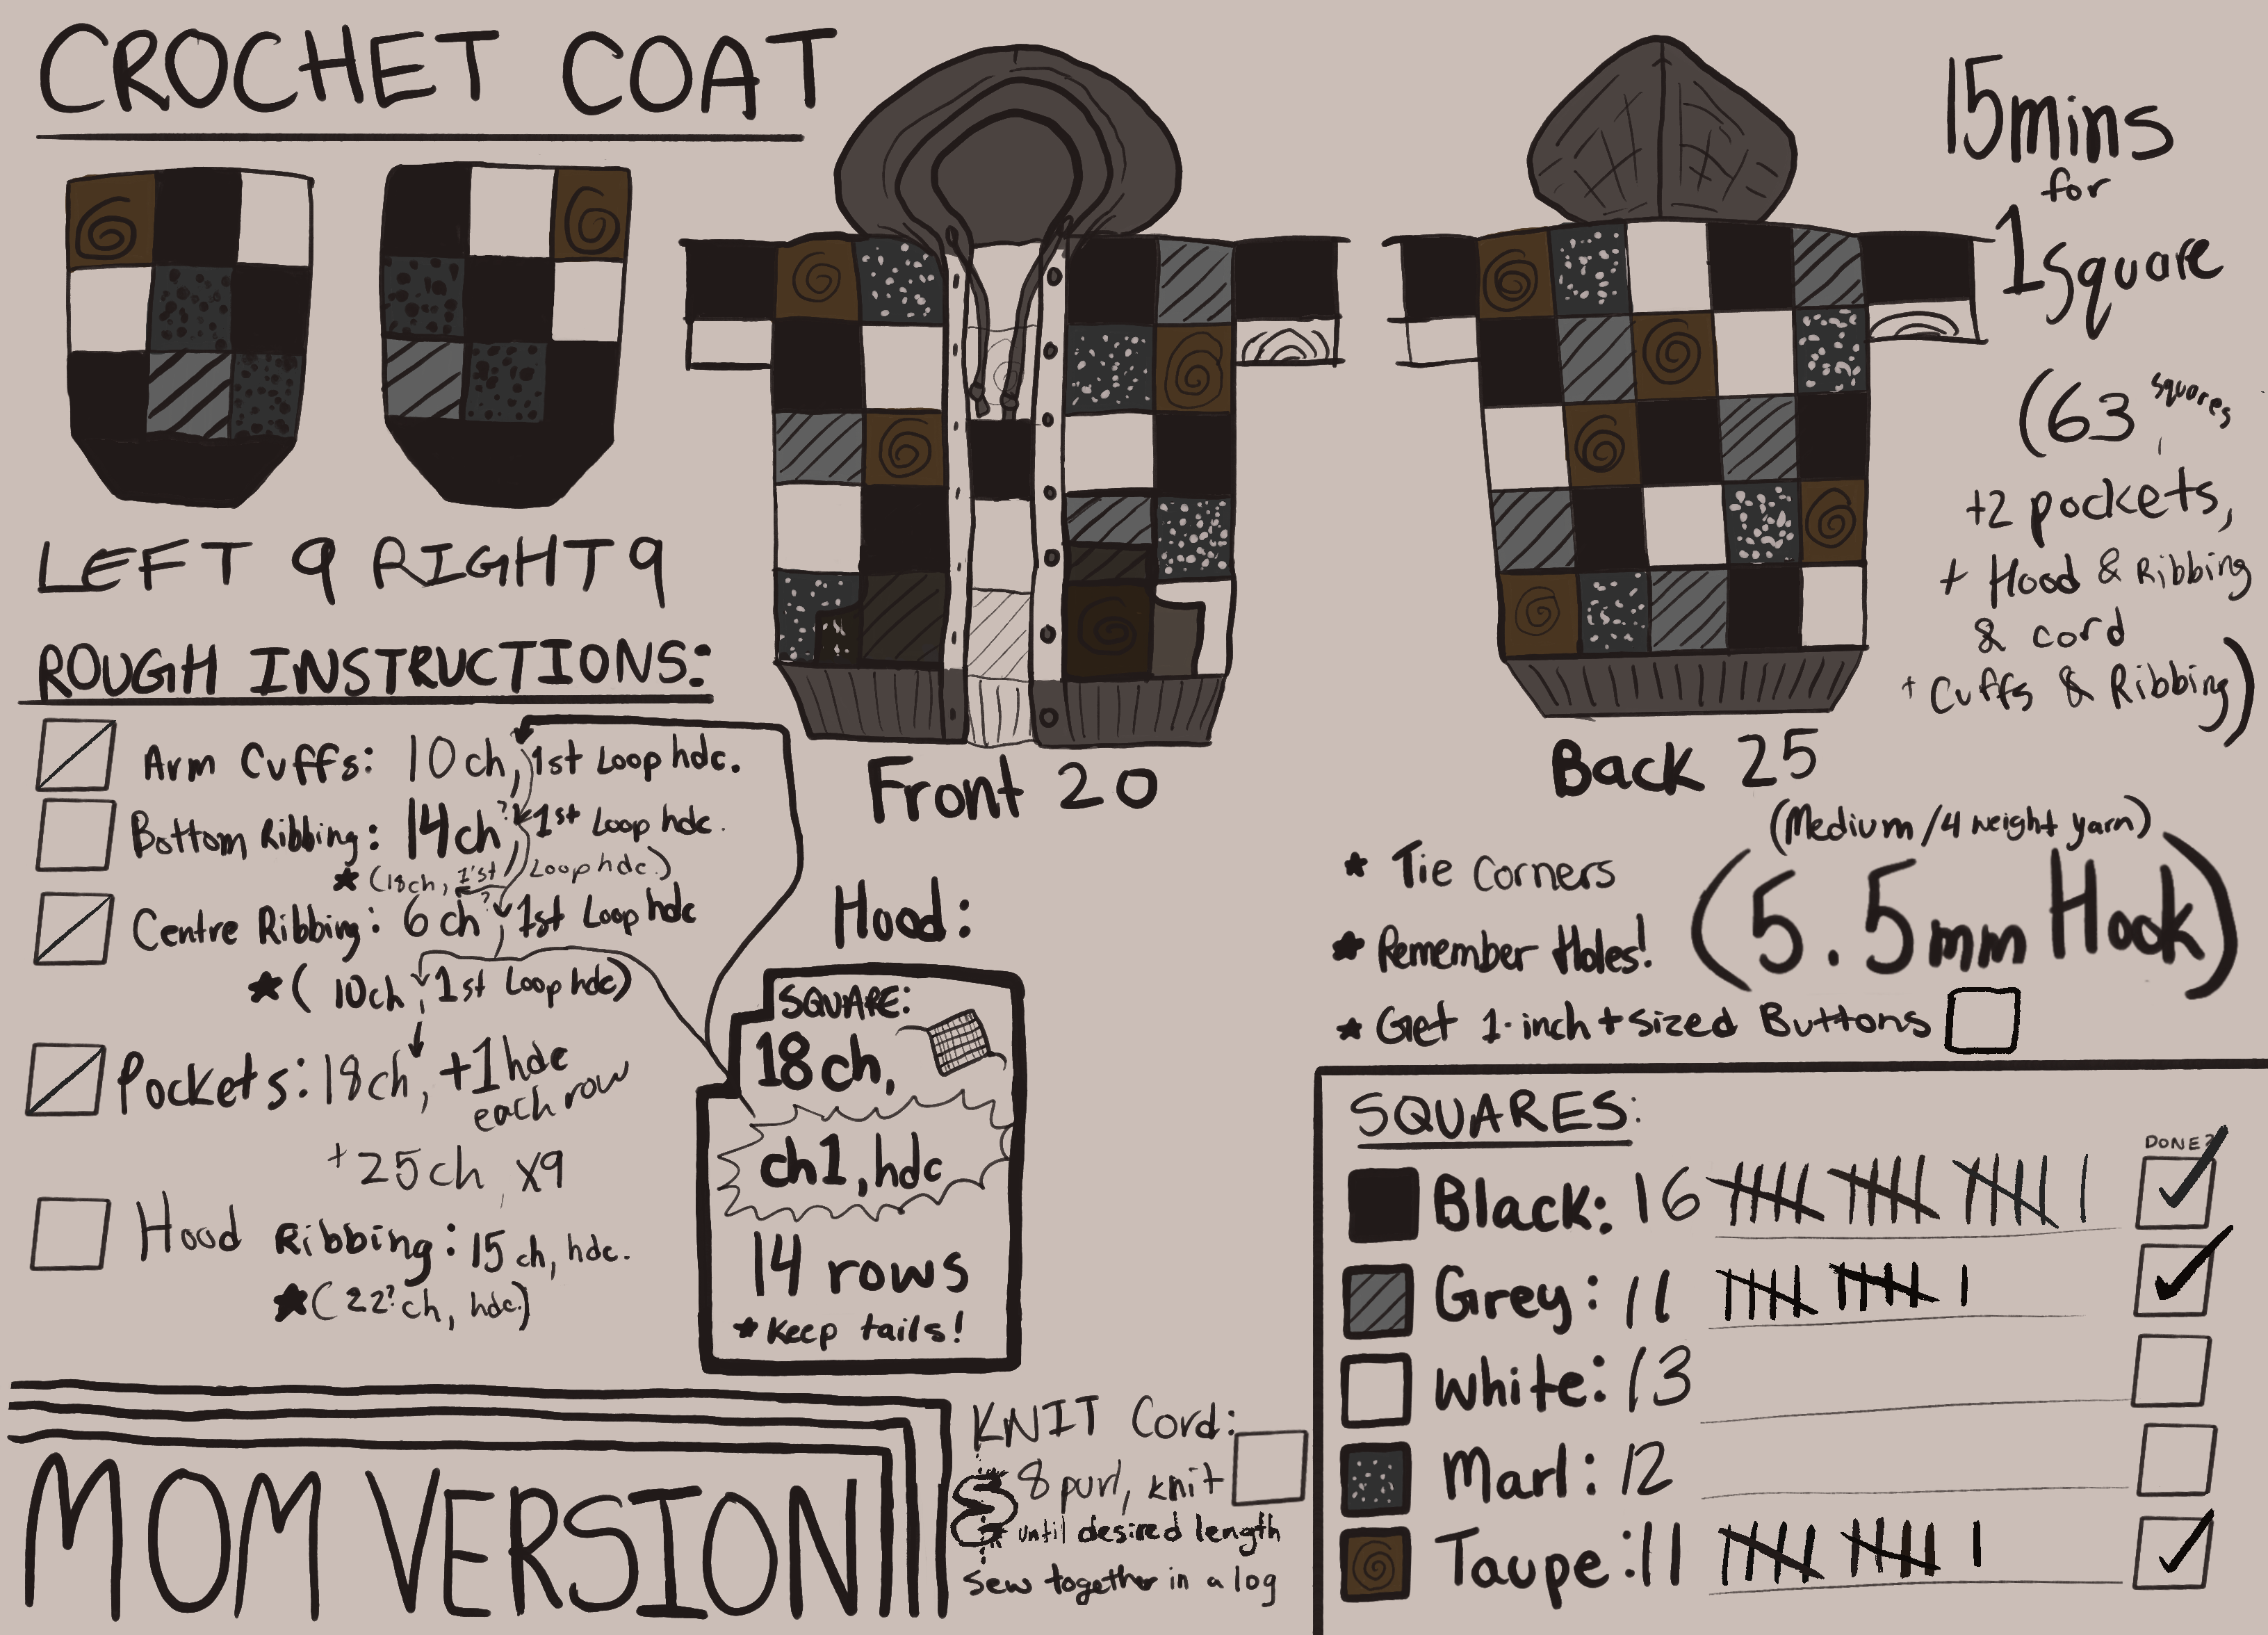 CROCHET COAT
LEFT 9 RIGHT 9
Front 20
Back 25
15mins
for
1 Square
(63 squares,
+2 pockets,
+ Hood & Ribbing
& cord
+ Cuffs & Ribbing)
ROUGH INSTRUCTIONS:
Arm Cuffs: 10ch, 1st Loop hdc.
Bottom Ribbing: 14ch?, 1st Loop hdc.
★ (18ch, 1'st Loop hdc.)
Centre Ribbing: 6ch?, 1st Loop hdc
★ (10ch, 1st Loop hdc)
Pockets: 18ch, +1hdc
each row
+25ch, x9
Hood Ribbing: 15ch, hdc.
★ (22?ch, hdc.)
Hood:
SQUARE:
18ch,
ch1, hdc
14 rows
★ Keep tails!
(Medium/4 weight yarn)
(5.5mm Hook)
★ Tie Corners
★ Remember Holes!
★ Get 1-inch + sized Buttons
SQUARES:
DONE?
Black: 16
Grey: 11
White: 13
Marl: 12
Taupe: 11
KNIT Cord:
8 purl, knit
until desired length
Sew together in a log
MOM VERSION